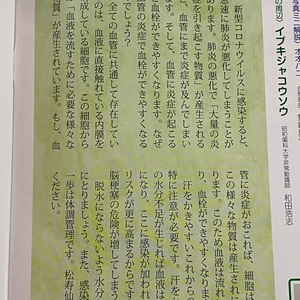 イブキジャコウソウ
昭和薬科大学非常勤講師 和田浩志
新型コロナウイルスに感染すると、
急速に肺炎が悪化してしまうことが
す。肺炎の悪化で「大量の炎
を引き起こす物質」が産生される
す。そして、血管に炎症が起こる
「血管にまで炎症が及んでしまい
血栓ができやすくなります。なぜ
管の炎症で血栓ができやすくなる
でしょう？
全ての血管に共通して存在してい
のは、血液に直接触れている内膜を
成している細胞です。この細胞から
「血液を流すために必要な様々な
質」が産生されています。もし、血
管に炎症がおこれば、細胞は
この様な物質は産生され
ます。このため血液は流れ
り、血栓ができやすくなりま
汗をかきやすいこれからの
特に注意が必要です。汗を
の水分不足が生じれば血液は
になり、ここに感染が加われ
リスクが更に高まるからです
脳梗塞の危険が増してしまう
脱水にならないよう水分
にとりましょう。また、感染
一歩は体調管理です。松寿仙
ください。